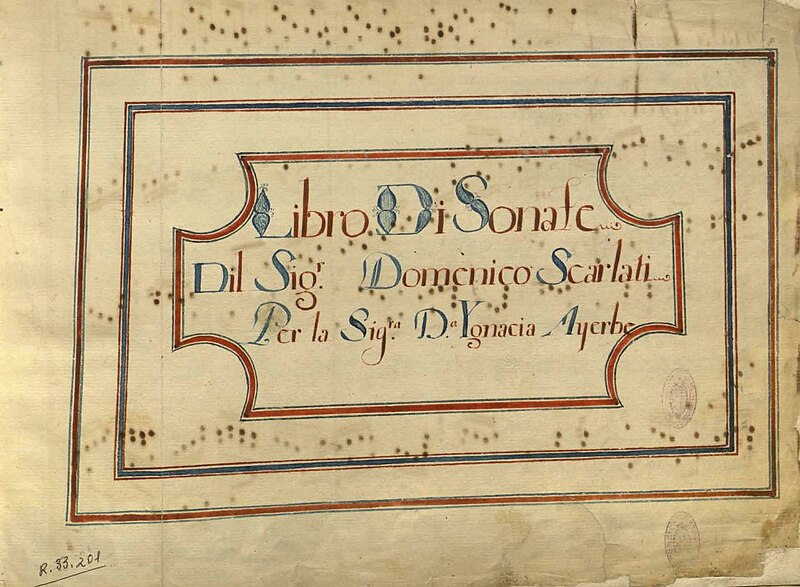 Libro Di Sonate
Dil Sigr. Domenico Scarlati
Per la Sigra. D.a Ygnacia Ayerbe
R.33.201